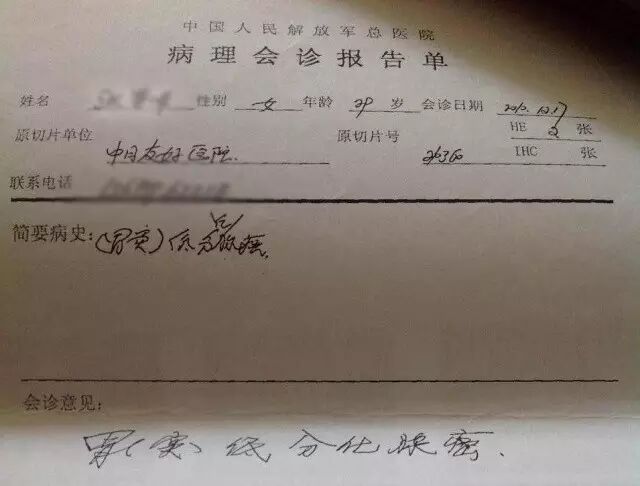 中国人民解放军总医院
病理会诊报告单
姓名 性别 女 年龄 29 岁 会诊日期
HE 2 张
原切片单位 中日友好医院. 原切片号 26360 IHC 张
联系电话
简要病史: (胃窦) 低分化腺癌.
会诊意见:
胃(窦) 低分化腺癌.